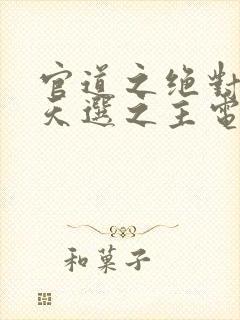 官道之绝對
天選之主電
和菓子